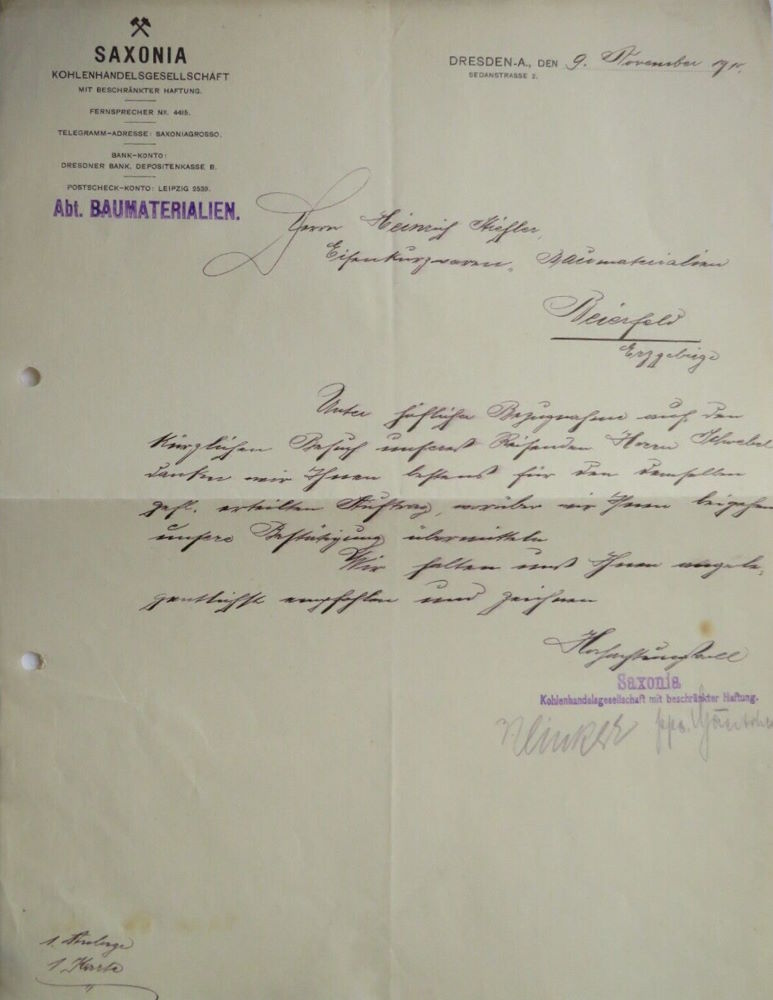 SAXONIA
KOHLENHANDELSGESELLSCHAFT
MIT BESCHRÄNKTER HAFTUNG.
FERNSPRECHER NR. 4415.
TELEGRAMM-ADRESSE: SAXONIAGROSSO.
BANK-KONTO:
DRESDNER BANK, DEPOSITENKASSE B.
POSTSCHECK-KONTO: LEIPZIG 2539.
Abt. BAUMATERIALIEN.
DRESDEN-A., DEN 9. November
SEDANSTRASSE 2.
Herrn Heinrich Stiehler,
Eisenkurzwaren, Baumaterialien
Beierfeld
Erzgebirge
Unter höflicher Bezugnahme auf den
kürzlichen Besuch unseres Reisenden Herrn Schwebel
danken wir Ihnen bestens für den demselben
gefl. erteilten Auftrag, worüber wir Ihnen beigehend
unsere Bestätigung übermitteln
Wir halten uns Ihnen angele-
gentlichst empfohlen und zeichnen
Hochachtungsvoll
Saxonia
Kohlenhandelsgesellschaft mit beschränkter Haftung.
ppa.
1 Anlage
1 Karte